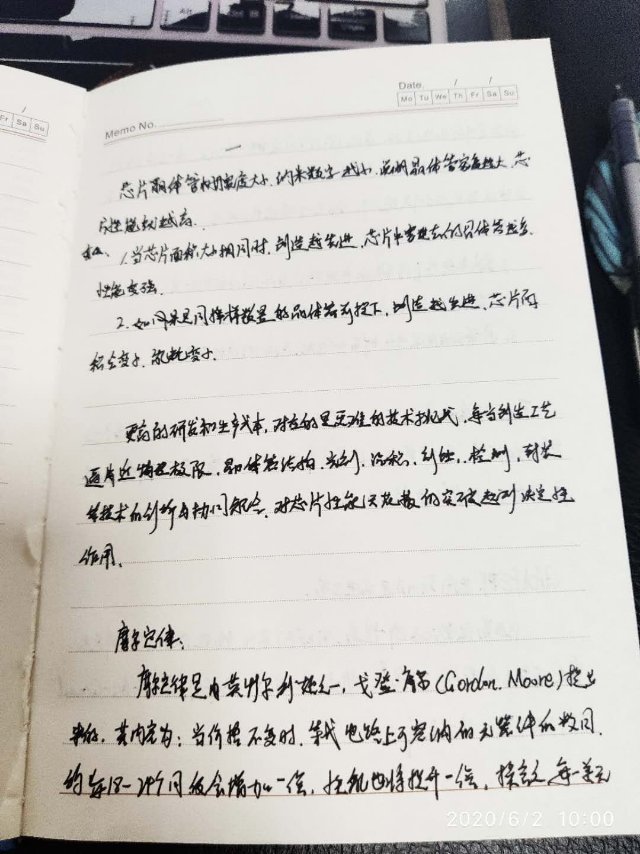 Date / /
Mo Tu We Th Fr Sa Su
Fr Sa Su
Memo No.
一
芯片晶体管的密度大小,纳米数字越小,说明晶体管密度越大,芯
片性能就越高.
1.当芯片面积大小相同时,制造越先进,芯片中晶体管越多,
性能变强.
2.如果是同样数量的晶体管前提下,制造越先进,芯片面
积会变小,功耗变小.
更高的研发和生产成本,对应的是更难的技术挑战,每当制造工艺
逼近物理极限,晶体管结构,光刻,沉积,刻蚀,检测,封装
等技术的创新与协同配合,对芯片性能天花板的突破起到决定性
作用.
摩尔定律:
摩尔定律是由英特尔创始人之一,戈登·摩尔(Gordon Moore)提出
来的,其内容为:当价格不变时,集成电路上可容纳的元器件的数目,
约每18-24个月便会增加一倍,性能也将提升一倍,换言之,每一美元
2020/6/2 10:00